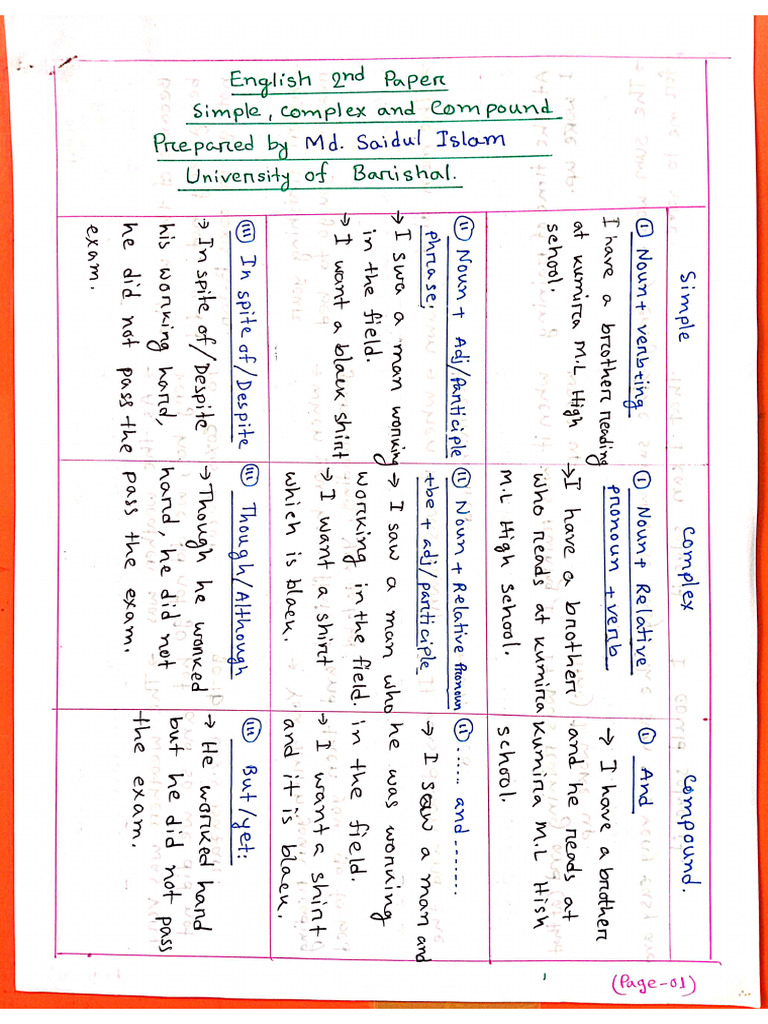 English 2nd Paper
Simple, complex and Compound
Prepared by Md. Saidul Islam
University of Barishal.
Simple
Complex
Compound.
(i) Noun + verb+ing
I have a brother reading
at kumira M.L High
school.
(i) Noun + Relative
pronoun + verb
→ I have a brother
who reads at kumira
M.L High School.
(i) And
→ I have a brother
and he reads at
Kumira M.L High
school.
(ii) Noun + Adj/Participle
phrase:
→ I swa a man working
in the field.
→ I want a black shirt
(ii) Noun + Relative Pronoun
+be + adj/participle
→ I saw a man who
working in the field.
→ I want a shirt
which is black.
(ii) ...... and ........
→ I saw a man and
he was working
in the field.
→ I want a shirt
and it is black.
(iii) In spite of/Despite
→ In spite of/Despite
his working hard,
he did not pass the
exam.
(iii) Though/Although
→ Though he worked
hard, he did not
pass the exam.
(iii) But/yet:
→ He worked hard
but he did not pass
the exam.
(Page-01)